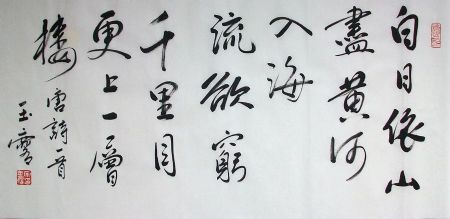 白日依山
盡黄河
入海
流欲窮
千里目
更上一層
樓唐詩首
玉雲